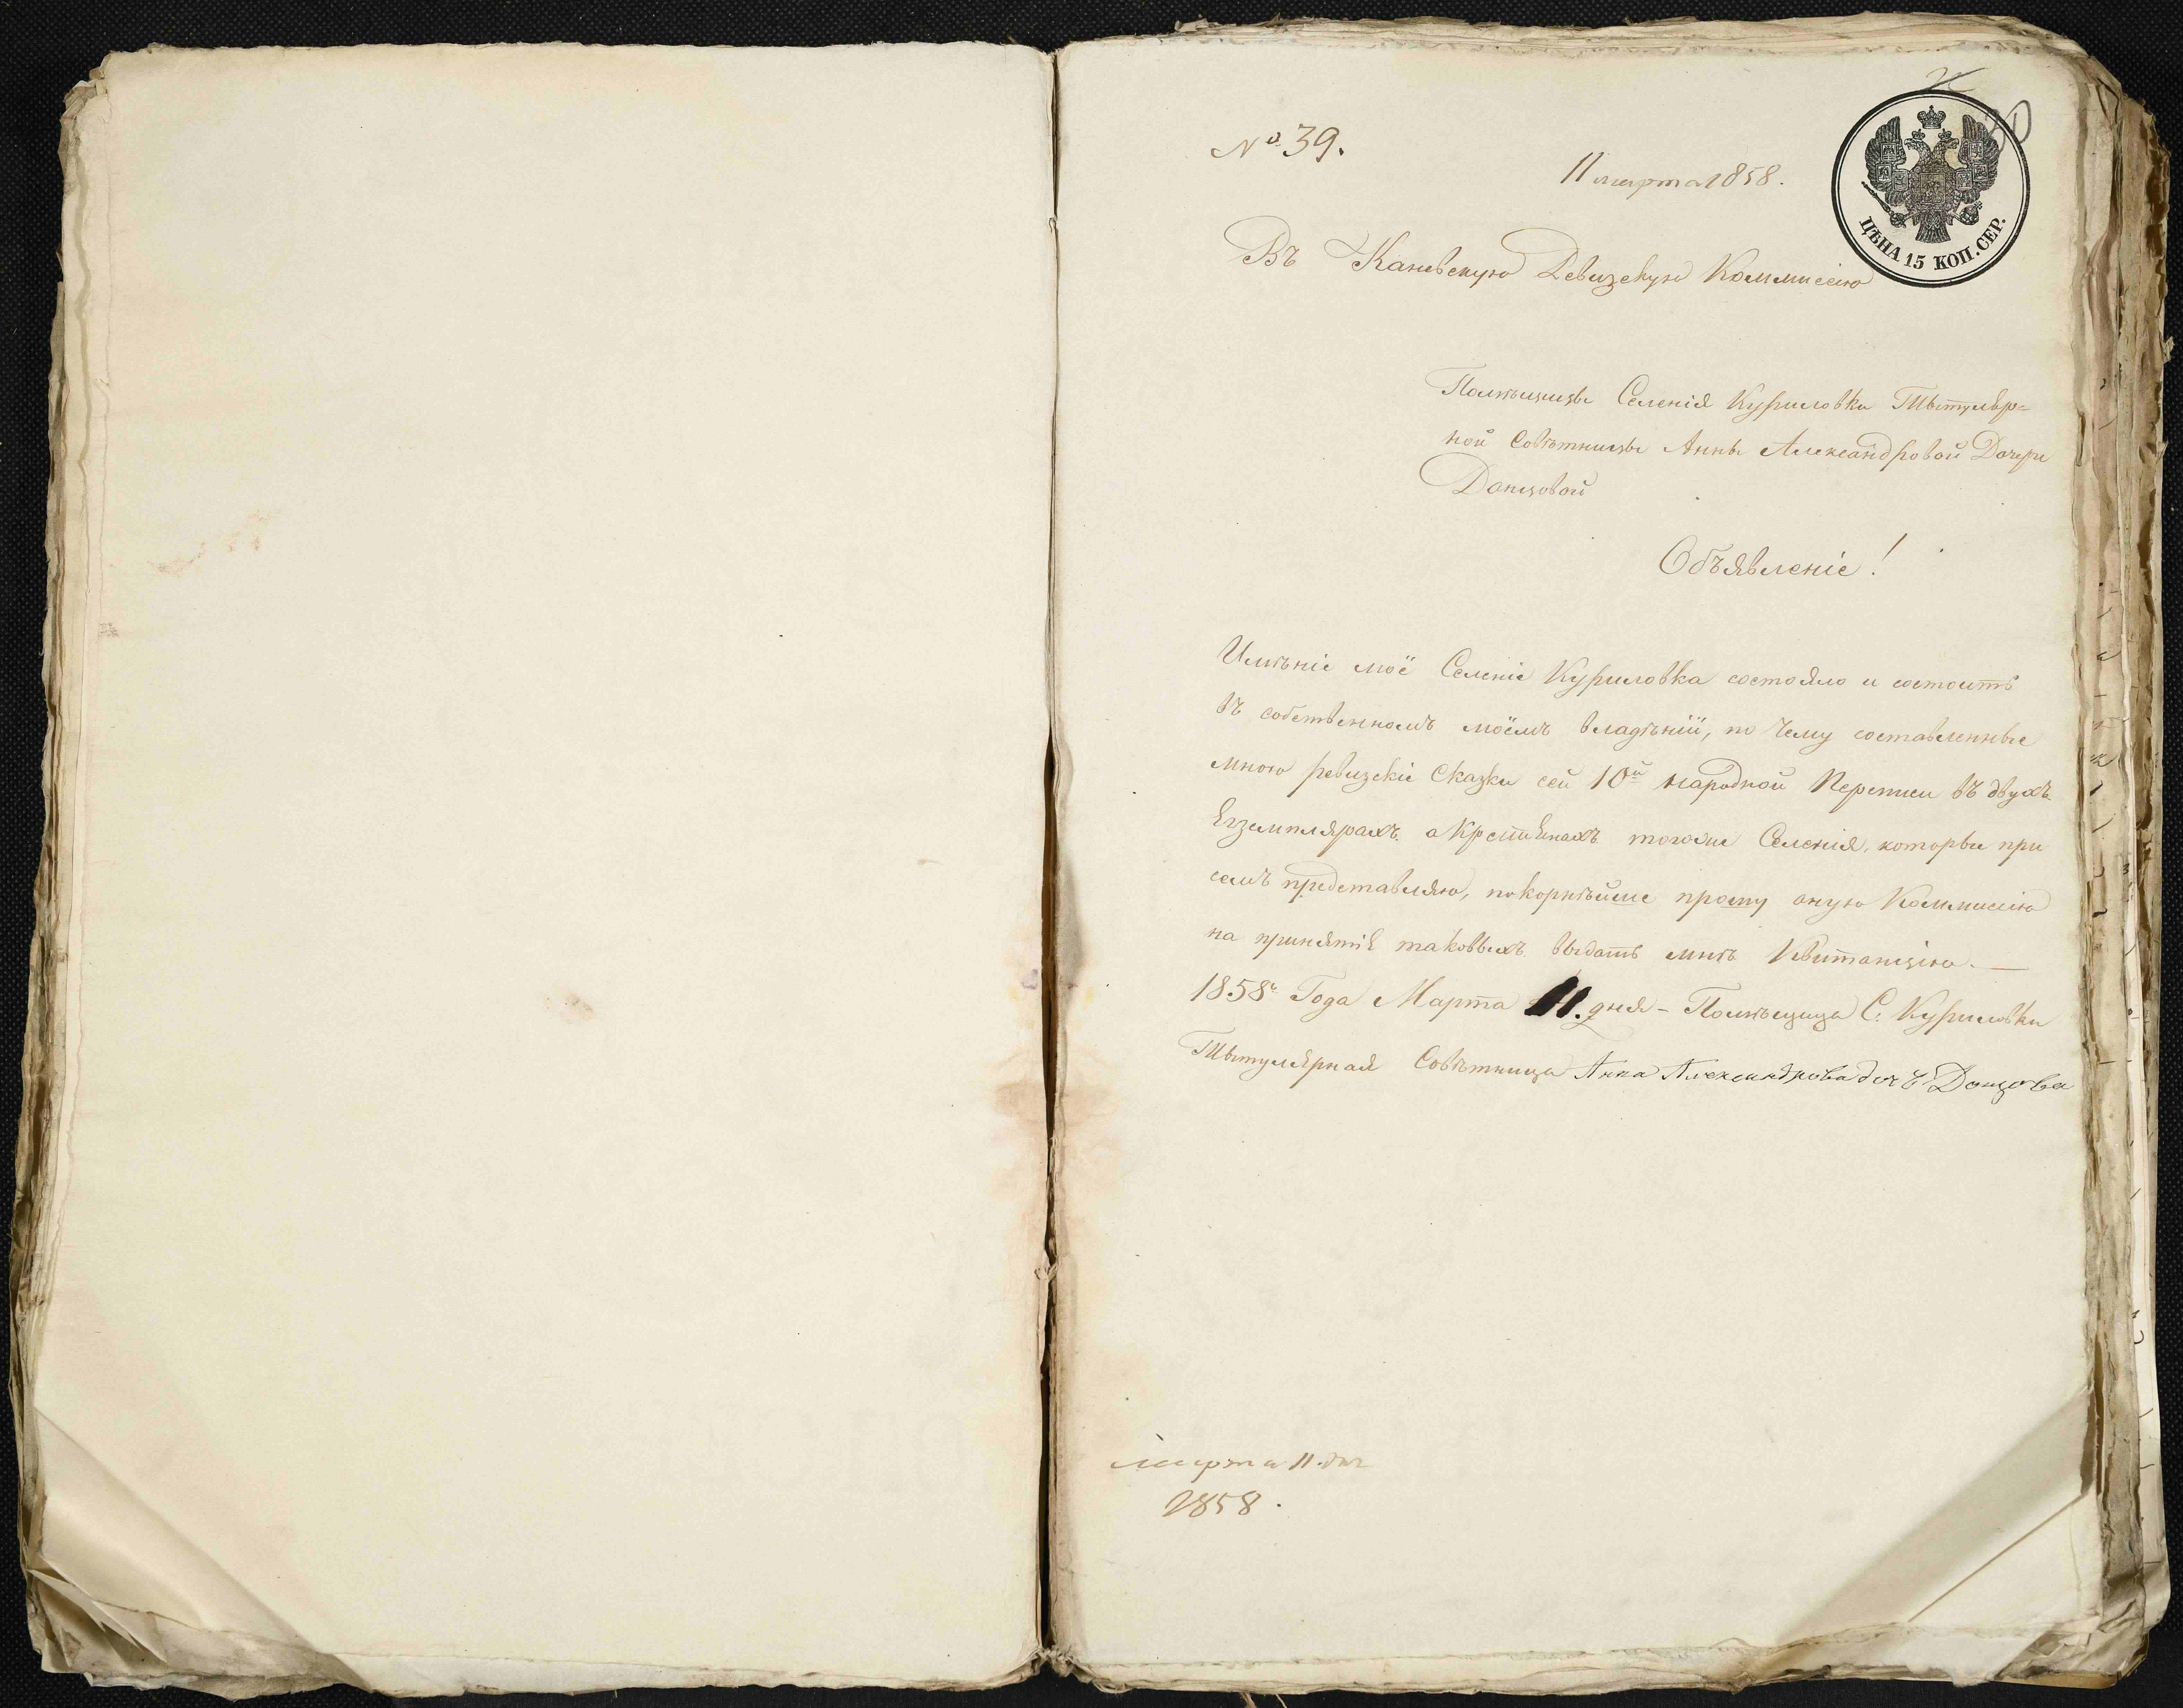 № 39.
11 марта 1858.
ЦѢНА 15 КОП. СЕР.
Въ Каневскую Ревизскую Коммиссію
Помѣщицы Селенія Куриловки Тытуляр=
ной Совѣтницы Анны Александровой Дочери
Донцовой
Объявленіе!
Имѣніе моё Селеніе Куриловка состояло и состоитъ
въ собственномъ моёмъ владѣніи, по чему составленные
мною ревизскіе Сказки сей 10й народной Переписи въ двухъ
Екземплярахъ о Крестьянахъ тогоже Селенія, которые при
семъ представляю, покорнѣйше прошу оную Коммиссію
на принятіе таковыхъ выдать мнѣ Квитанцію.—
1858го Года Марта 11. дня – Помѣщица С. Куриловки
Тытулярная Совѣтница Анна Александрова дочь Донцова
марта 11. дня
1858.